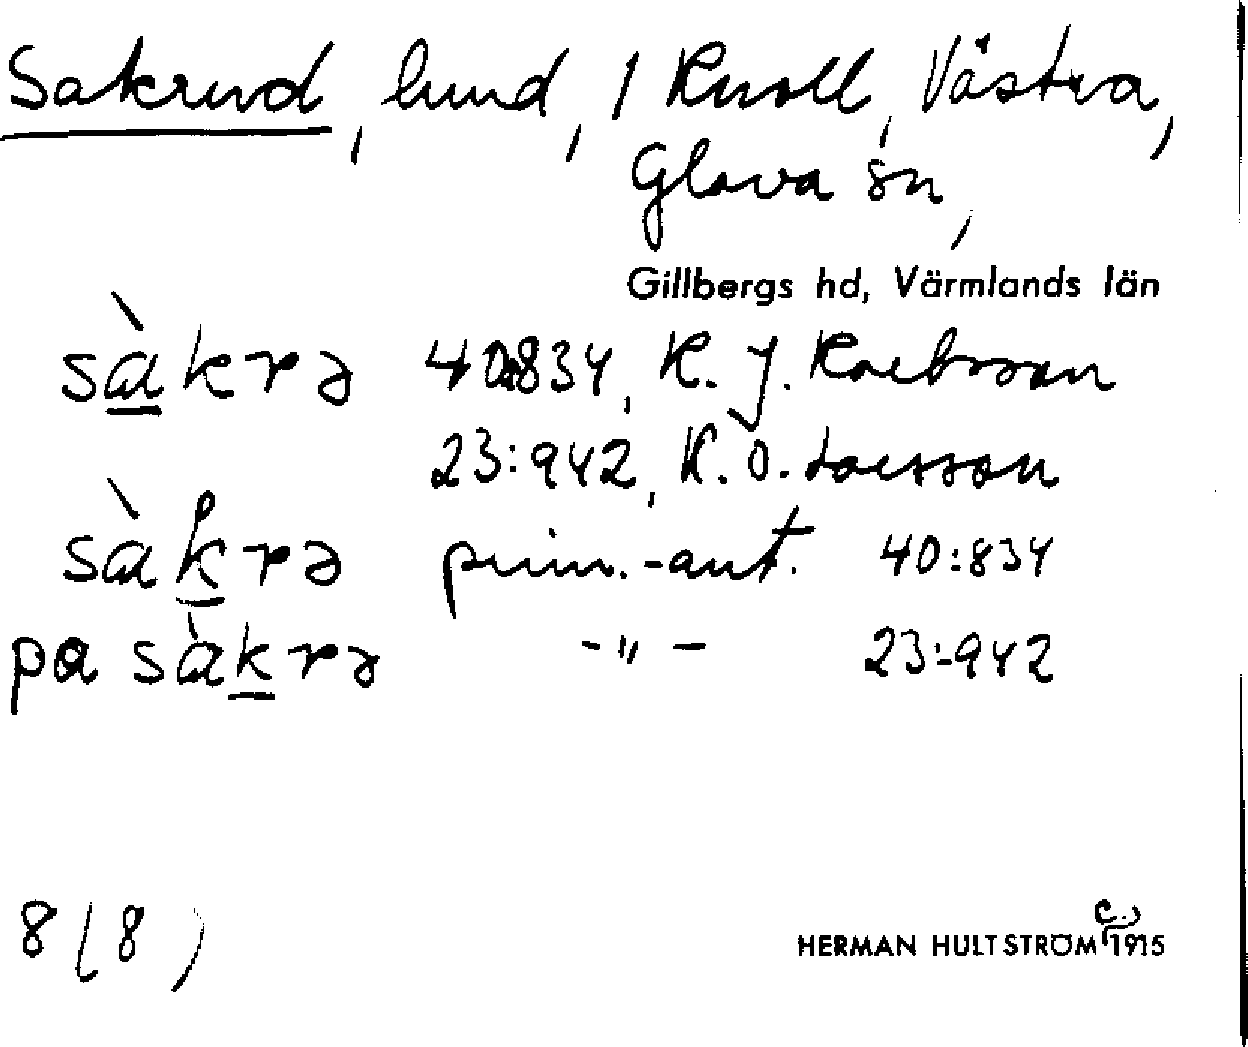 Sakrud, lund, 1 Knoll, Västra,
Glava sn,
Gillbergs hd, Värmlands län
sàkrə 40:834, K. J. Karlsson
23:942, K. O. Larsson
sàkrə prim.-ant. 40:834
pa sàkrə -"- 23:942
8 (8)
HERMAN HULTSTRÖM (c.) 1915